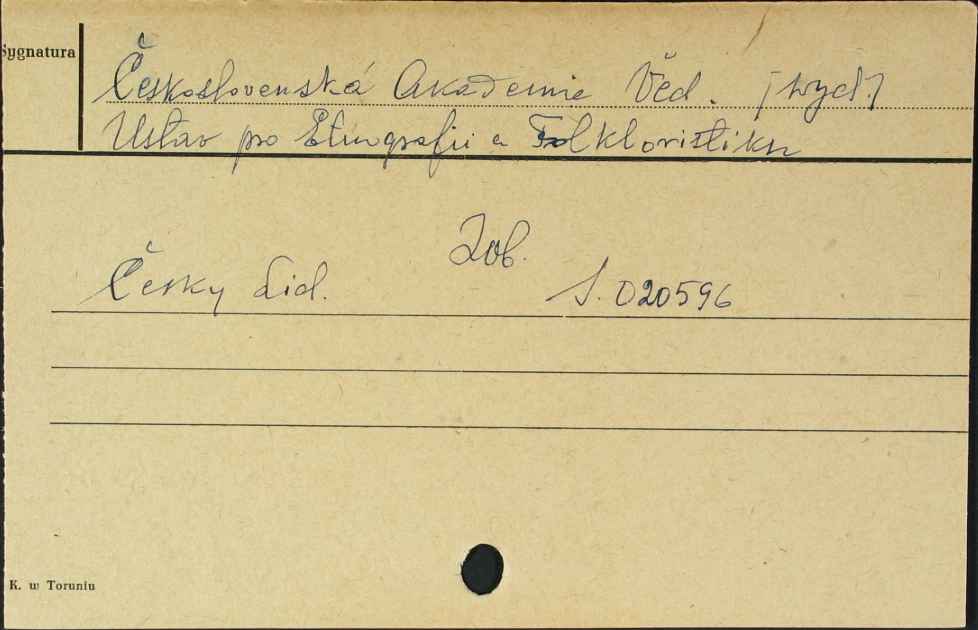 Sygnatura
Československá Akademie Věd. [wyd.]
Ustav pro Etnografii a Folkloristiku
Zob.
Česky Lid. S. 020596
K. w Toruniu